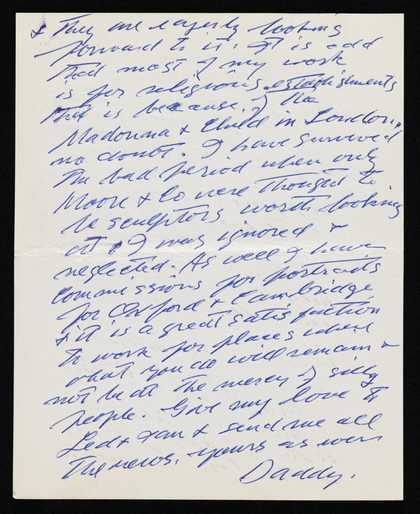 & they are eagerly looking
forward to it. It is odd
that most of my work
is for religious establishments
that is because of the
Madonna & Child in London,
no doubt. I have survived
the bad period when only
Moore & Co were thought to
be sculptors worth looking
at & I was ignored &
neglected. As well I have
commissions for portraits
for Oxford & Cambridge
& it is a great satisfaction
to work for places where
what you do will remain &
not be at the mercy of silly
people. Give my love to
& send me all
the news. Yours as ever
Daddy.